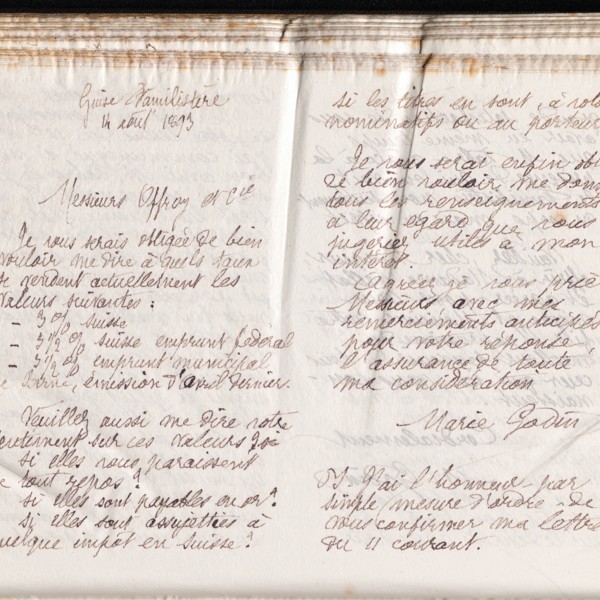 Guise Familistère
14 août 1893
Messieurs Offroy et Cie
Je vous serais obligée de bien
vouloir me dire à quels taux
se vendent actuellement les
valeurs suivantes :
- 3 % suisse
- 3 1/2 % suisse emprunt fédéral
- 3 1/2 % emprunt municipal
de Berne, émission d'avril dernier.
Veuillez aussi me dire votre
sentiment sur ces valeurs
si elles vous paraissent
de tout repos ?
si elles sont payables en or ?
si elles sont assujetties à
quelque impôt en Suisse ?
si les titres en sont, à
nominatifs ou au porteur
Je vous serai enfin
de bien vouloir me
tous les renseignements
à leur égard que vous
jugeriez utiles à mon
intérêt.
Agréez je vous prie
Messieurs avec mes
remerciements anticipés
pour votre réponse,
l'assurance de toute
ma considération
Marie Godin
PS J'ai l'honneur par
simple mesure d'ordre de
vous confirmer ma lettre
du 11 courant.